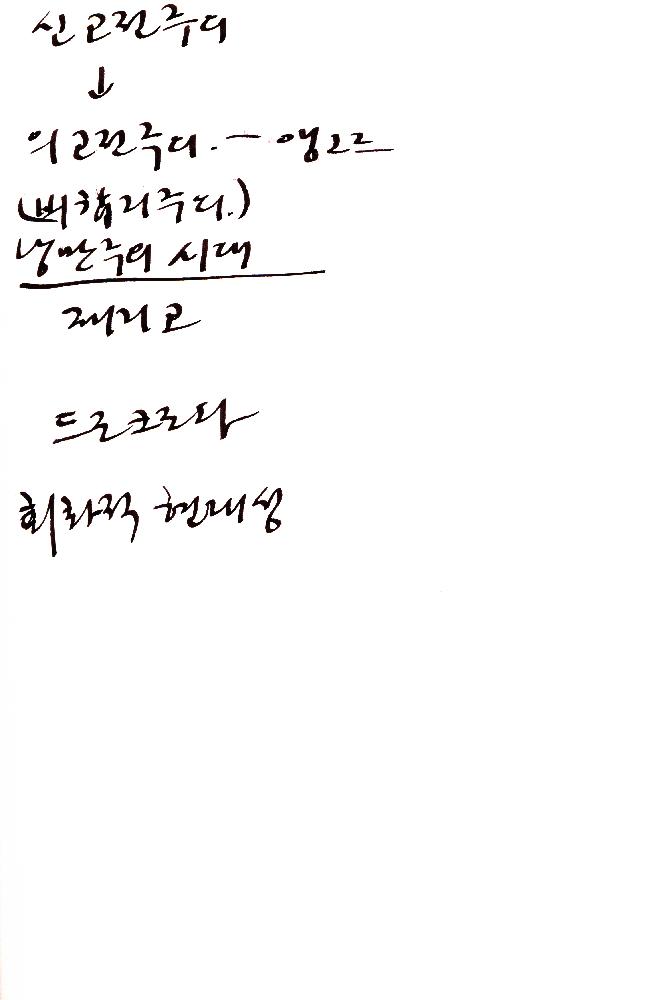 신고전주의
↓
의고전주의. - 앵그르
(비합리주의.)
낭만주의 시대
제리코
드로크로다
회화적 현대성